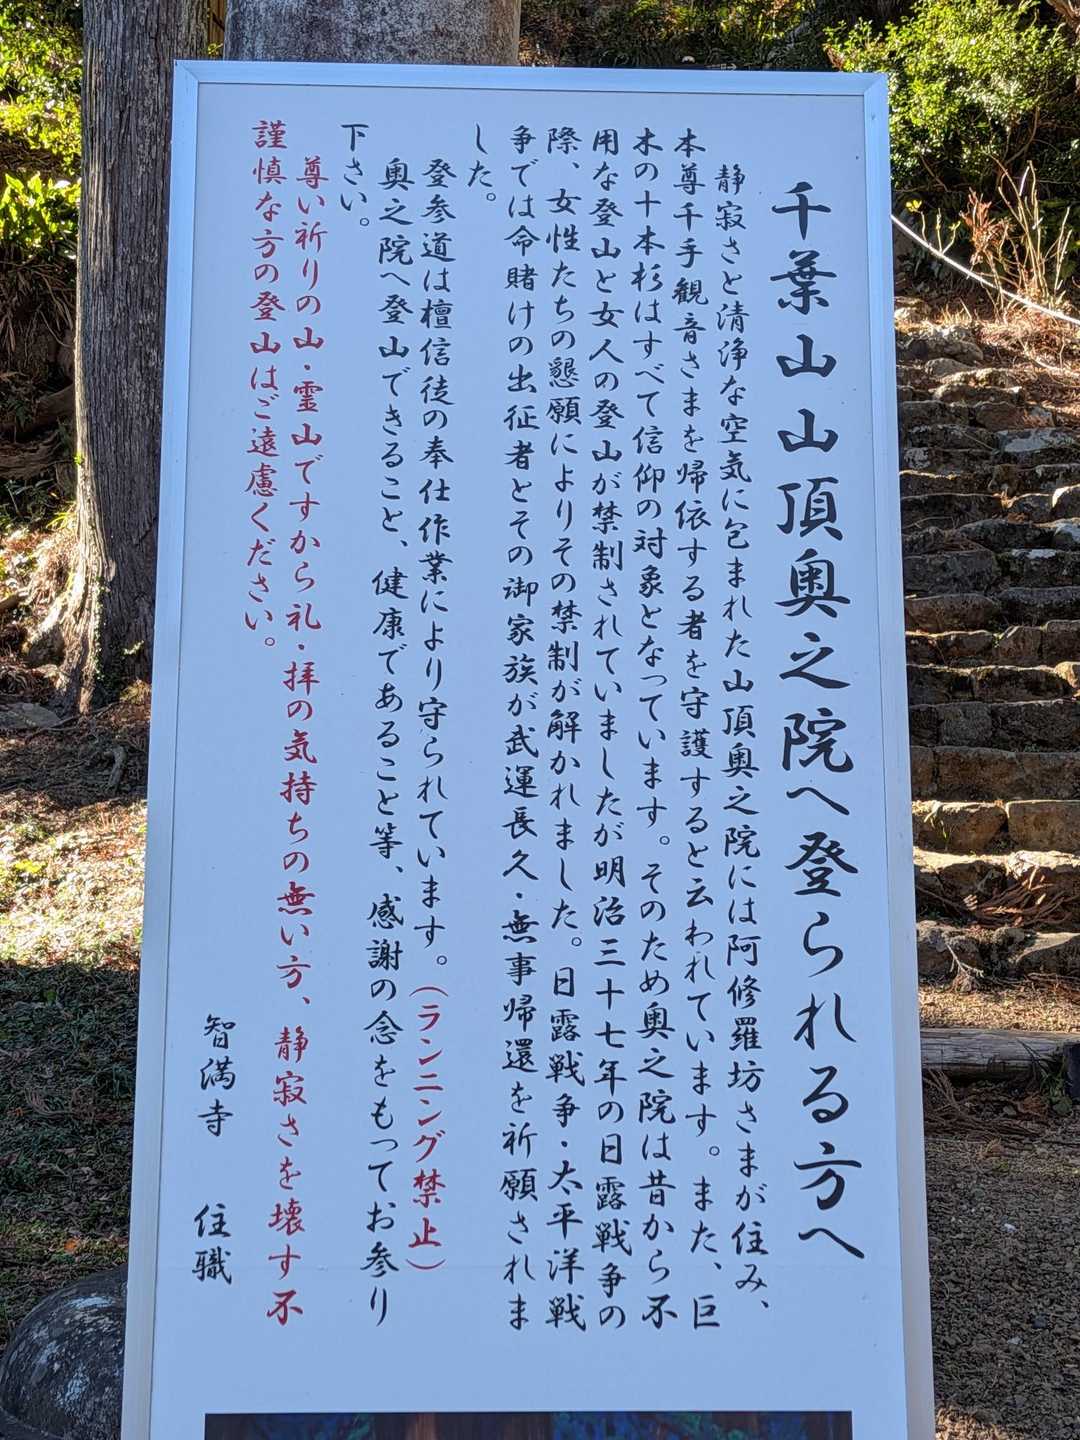 千葉山山頂奥之院へ登られる方へ
静寂さと清浄な空気に包まれた山頂奥之院には阿修羅坊さまが住み、
本尊千手観音さまを帰依する者を守護すると云われています。また、巨
木の十本杉はすべて信仰の対象となっています。そのため奥之院は昔から不
用な登山と女人の登山が禁制されていましたが明治三十七年の日露戦争の
際、女性たちの懇願によりその禁制が解かれました。日露戦争・太平洋戦
争では命賭けの出征者とその御家族が武運長久・無事帰還を祈願されま
した。
登参道は檀信徒の奉仕作業により守られています。(ランニング禁止)
奥之院へ登山できること、健康であること等、感謝の念をもってお参り
下さい。
尊い祈りの山・霊山ですから礼・拝の気持ちの無い方、静寂さを壊す不
謹慎な方の登山はご遠慮ください。
智満寺 住職